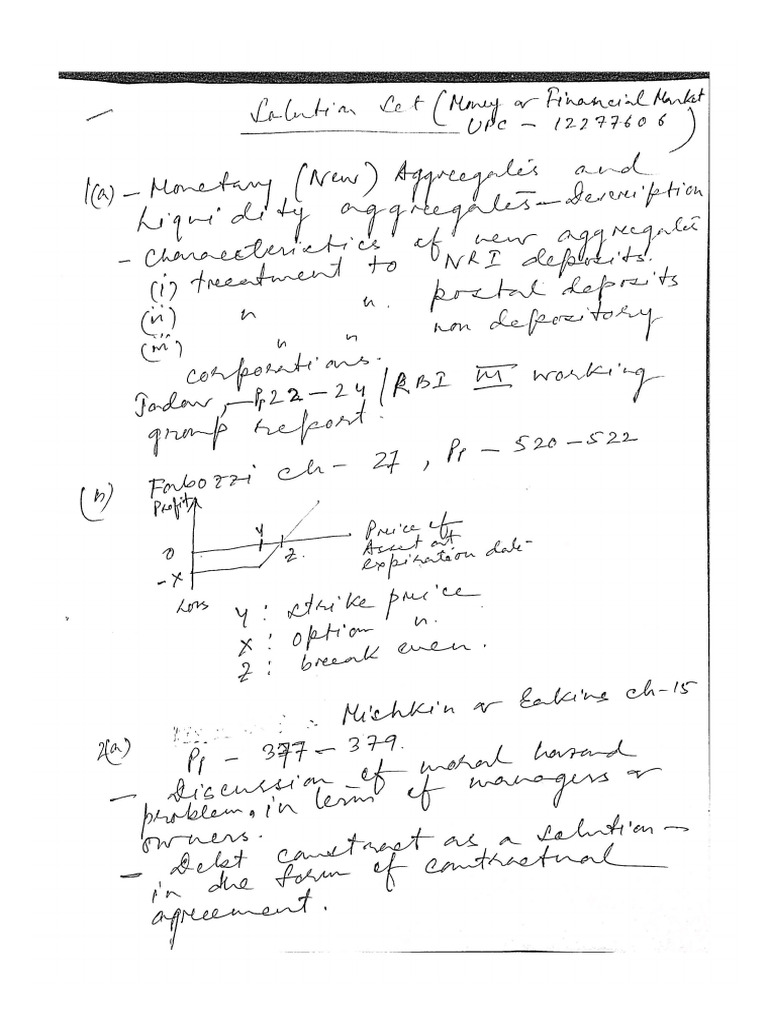 Solution Set (Money & Financial Market
UPC - 12277606)
1(a) - Monetary (New) Aggregates and
Liquidity aggregates - Description
- Characteristics of new aggregates
(i) treatment to NRI deposits.
(ii) " ". postal deposits
(iii) " " non depository
corporations.
Jadav, - Pp 22 - 24 / RBI III working
group report.
(b) Fabozzi ch - 27, Pp - 520 - 522
Profit
Y
0
Z.
Price of
Asset at
expiration date -
- X
Loss
Y : strike price
X : option ".
Z : break even.
Mishkin & Eakins ch - 15
2(a)
Pp - 377 - 379.
- Discussion of moral hazard
problem, in term of managers &
owners.
- Debt contract as a solution -
in the form of contractual
agreement.